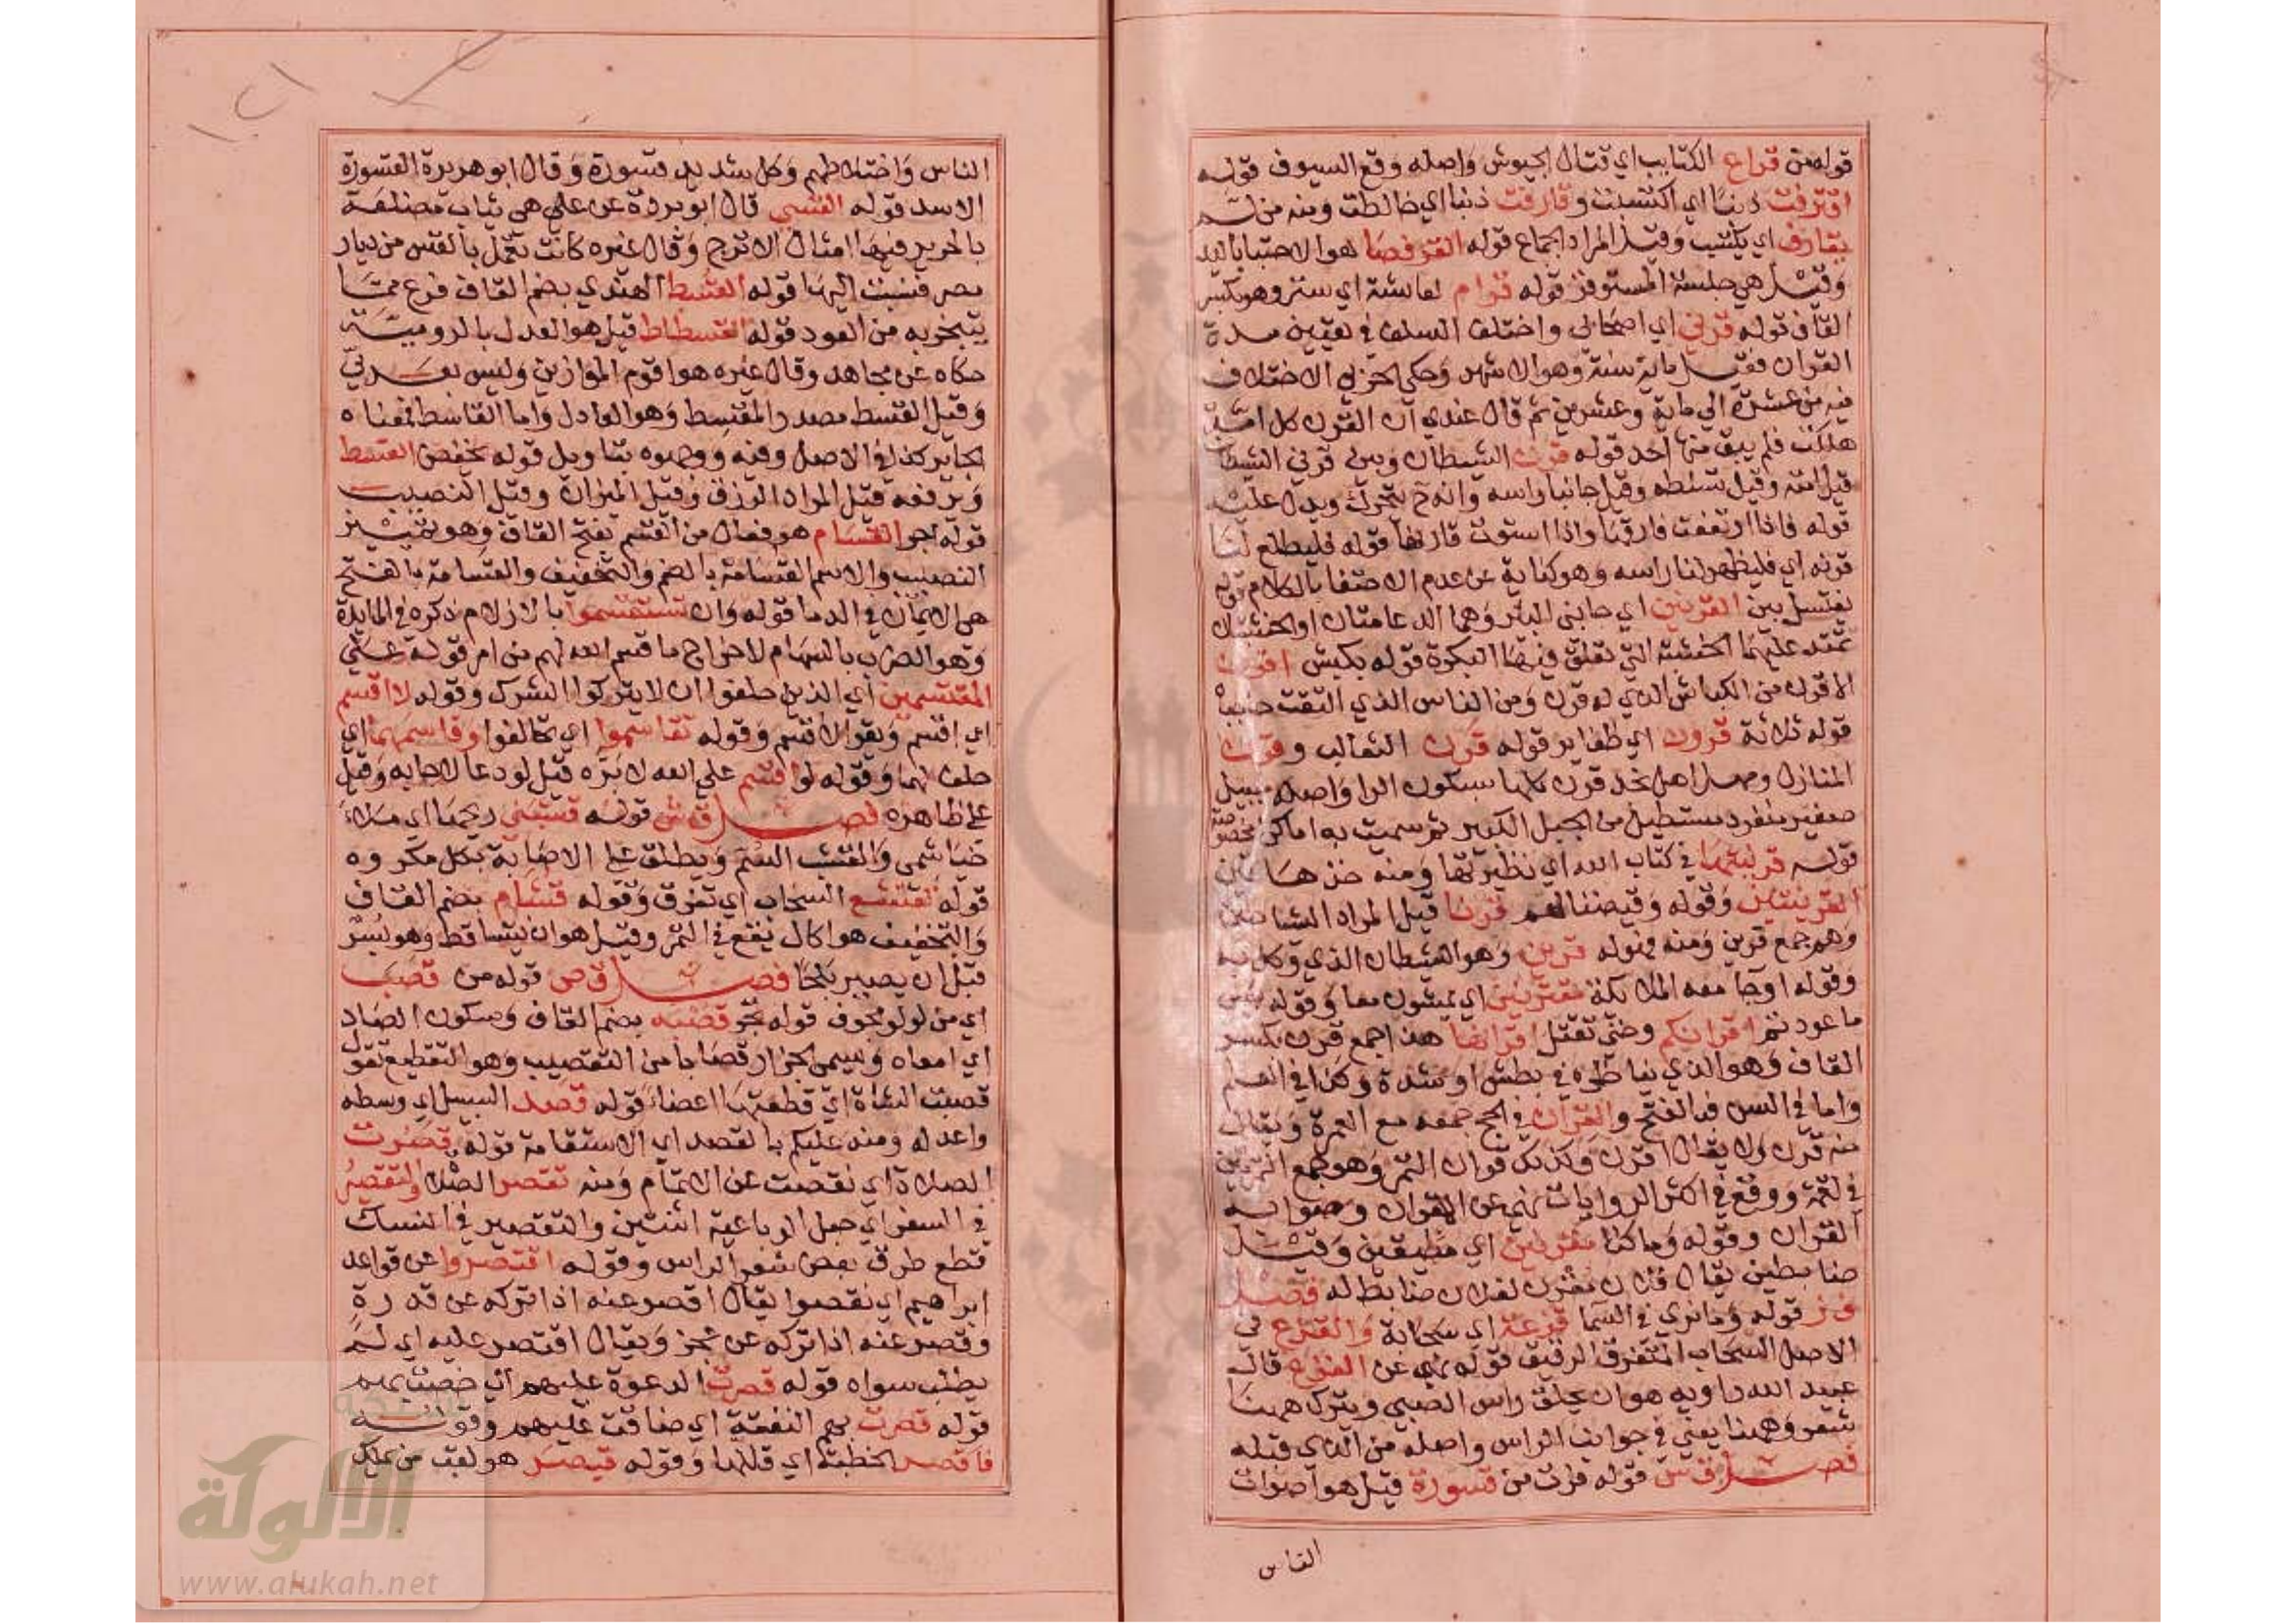 قوله من قراع الكتايب اي قتال الجيوش واصله وقع السيوف قوله
اقترفت ذنبا اي اكتسبت وقارفت ذنبا اي خالطت ومنه من لم
يقارف اي يكتسب وقيل المراد الجماع قوله القرفصا هو الاحتبا باليد
وقيل هي جلسة المستوفز قوله قرام لعائشة اي ستر وهو بكسر
القاف قوله قرني اي اصحابي واختلف السلف في تعيين مدة
القران فقيل ماية سنة وهو الاشهر وحكى الحربي الاختلاف
فيه من عشرة الي ماية وعشرين ثم قال عندي ان القرن كل امة
هلكت فلم يبق منها احد قوله قرن الشيطان وبين قرني الشيطان
قيل امته وقيل تسلطه وقيل جانبا راسه وانه ح يتحرك ويدل عليه
قوله فاذا ارتفعت فارقها واذا استوت قارنها قوله فليطلع لنا
قرنه اي فليظهر لنا راسه وهو كناية عن عدم الاختفا بالكلام قوله
يغتسل بين القرنين اي جانبي البئر وهما الدعامتان او الخشبتان
تمتد عليهما الخشبة التي تعلق فيها البكرة قوله بكبش اقرن
الاقرن من الكباش الذي له قرن ومن الناس الذي التقت حاجباه
قوله ثلاثة قرون اي ظفاير قوله قرن الثعالب وقرن
المنازل ومهل اهل نجد قرن كلها بسكون الرا واصله جبيل
صغير منفرد مستطيل من الجبل الكبير ثم سميت به اماكن مخصوصة
قوله قرينتها في كتاب الله اي نظيرتها ومنه خذ هاتين
القرينتين وقوله وقيضنا لهم قرنا قيل المراد الشياطين
وهم جمع قرين ومنه قوله قرين وهو الشيطان الذي وكل به
وقوله او جا معه الملائكة مقترنين اي يمشون معا وقوله بئس
ما عودتم اقرانكم وحتى تقتل اقرانها هذا جمع قرن بكسر
القاف وهو الذي يناظره في بطش او شدة وكذا في العلم
واما في السن فبالفتح والقران في الحج جمعه مع العمرة ويقال
منه قرن ولا يقال اقرن وكذلك قران التمر وهو جمع التمرتين
في لقمة ووقع في اكثر الروايات نهي عن الاقران وصوابه
القران وقوله وما كنا مقرنين اي مطيقين وقيل
ضابطين يقال فلان مقرن لفلان ضابط له فصل
ق ز قوله وما نرى في السما قزعة اي سحابة والقزع في
الاصل السحاب المتفرق الرقيق قوله نهي عن القزع قال
عبيد الله راويه هو ان يحلق راس الصبي ويترك ههنا
شعر وههنا يعني في جوانب الراس واصله من الذي قبله
فصل ق س قوله فرت من قسورة قيل هو اصوات
الناس
الناس واختلاطهم وكل شديد قسورة وقال ابو هريرة القسورة
الاسد قوله القسي قال ابو بردة عن علي هي ثياب مضلعة
بالحرير فيها امثال الاترج وقال غيره كانت تعمل بالقس من ديار
مصر فنسبت اليها قوله القسط الهندي بضم القاف فزع مما
يتبخر به من العود قوله القسطاط قيل هو العدل بالرومية
حكاه عن مجاهد وقال غيره هو اقوم الموازين وليس بعربي
وقيل القسط مصدر المقسط وهو العادل واما القاسط فمعناه
الجاير كذا في الاصل وفيه ووجهوه بتاويل قوله يخفض القسط
ويرفعه قيل المراد الرزق وقيل الميزان وقيل النصيب
قوله اجر القسام هو فعال من القسم بفتح القاف وهو تمييز
النصيب والاسم القسامة بالضم والتخفيف والقسامة بالفتح
هي الايمان في الدما قوله وان تستقسموا بالازلام ذكره في المايدة
وهو الضرب بالسهام لاخراج ما قسم الله لهم من امر قوله على
المقتسمين اي الذين حلفوا ان لا يتركوا الشرك وقوله لا اقسم
اي اقسم ويقرا لاقسم وقوله تقاسموا اي تحالفوا وقاسمهما اي
حلف لهما وقوله لو اقسم على الله لابره قيل لو دعا لاجابه وقيل
على ظاهره فصل ق ش قوله قشبني ريحها اي ملا
خياشمي والقشب السم ويطلق على الاصابة بكل مكروه
قوله تقشع السحاب اي تفرق وقوله قشام بضم القاف
والتخفيف هو اكال يقع في التمر وقيل هو ان يتساقط وهو بسر
قبل ان يصير بلحا فصل ق ص قوله من قصب
اي من لولو مجوف قوله يجر قصبه بضم القاف وسكون الصاد
اي امعاه ويسمى الجزار قصابا من التقصيب وهو التقطيع تقول
قصبت الشاة اي قطعتها اعضا قوله قصد السبيل اي وسطه
واعدله ومنه عليكم بالقصد اي الاستقامة قوله قصرت
الصلاة اي نقصت عن الاتمام ومنه تقصر الصلاة والتقصير
في السفر اي جعل الرباعية اثنتين والتقصير في النسك
قطع طرف بعض شعر الراس وقوله اقتصروا عن قواعد
ابراهيم اي نقصوا يقال اقصر عنه اذا تركه عن قدرة
وقصر عنه اذا تركه عن عجز ويقال اقتصر عليه اي لم
يطلب سواه قوله قصرت الدعوة عليهم اي خصت بهم
قوله قصرت بهم النفقة اي ضاقت عليهم وقوله
فاقصر الخطبة اي قللها وقوله قيصر هو لقب من يملك
الألوكة
www.alukah.net